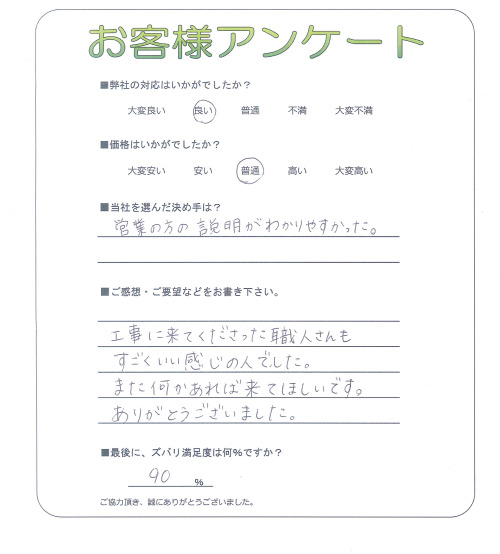 お客様アンケート
■弊社の対応はいかがでしたか？
大変良い 良い 普通 不満 大変不満
■価格はいかがでしたか？
大変安い 安い 普通 高い 大変高い
■当社を選んだ決め手は？
営業の方の説明がわかりやすかった。
■ご感想・ご要望などをお書き下さい。
工事に来てくださった職人さんも
すごくいい感じの人でした。
また何かあれば来てほしいです。
ありがとうございました。
■最後に、ズバリ満足度は何%ですか？
90 %
ご協力頂き、誠にありがとうございました。